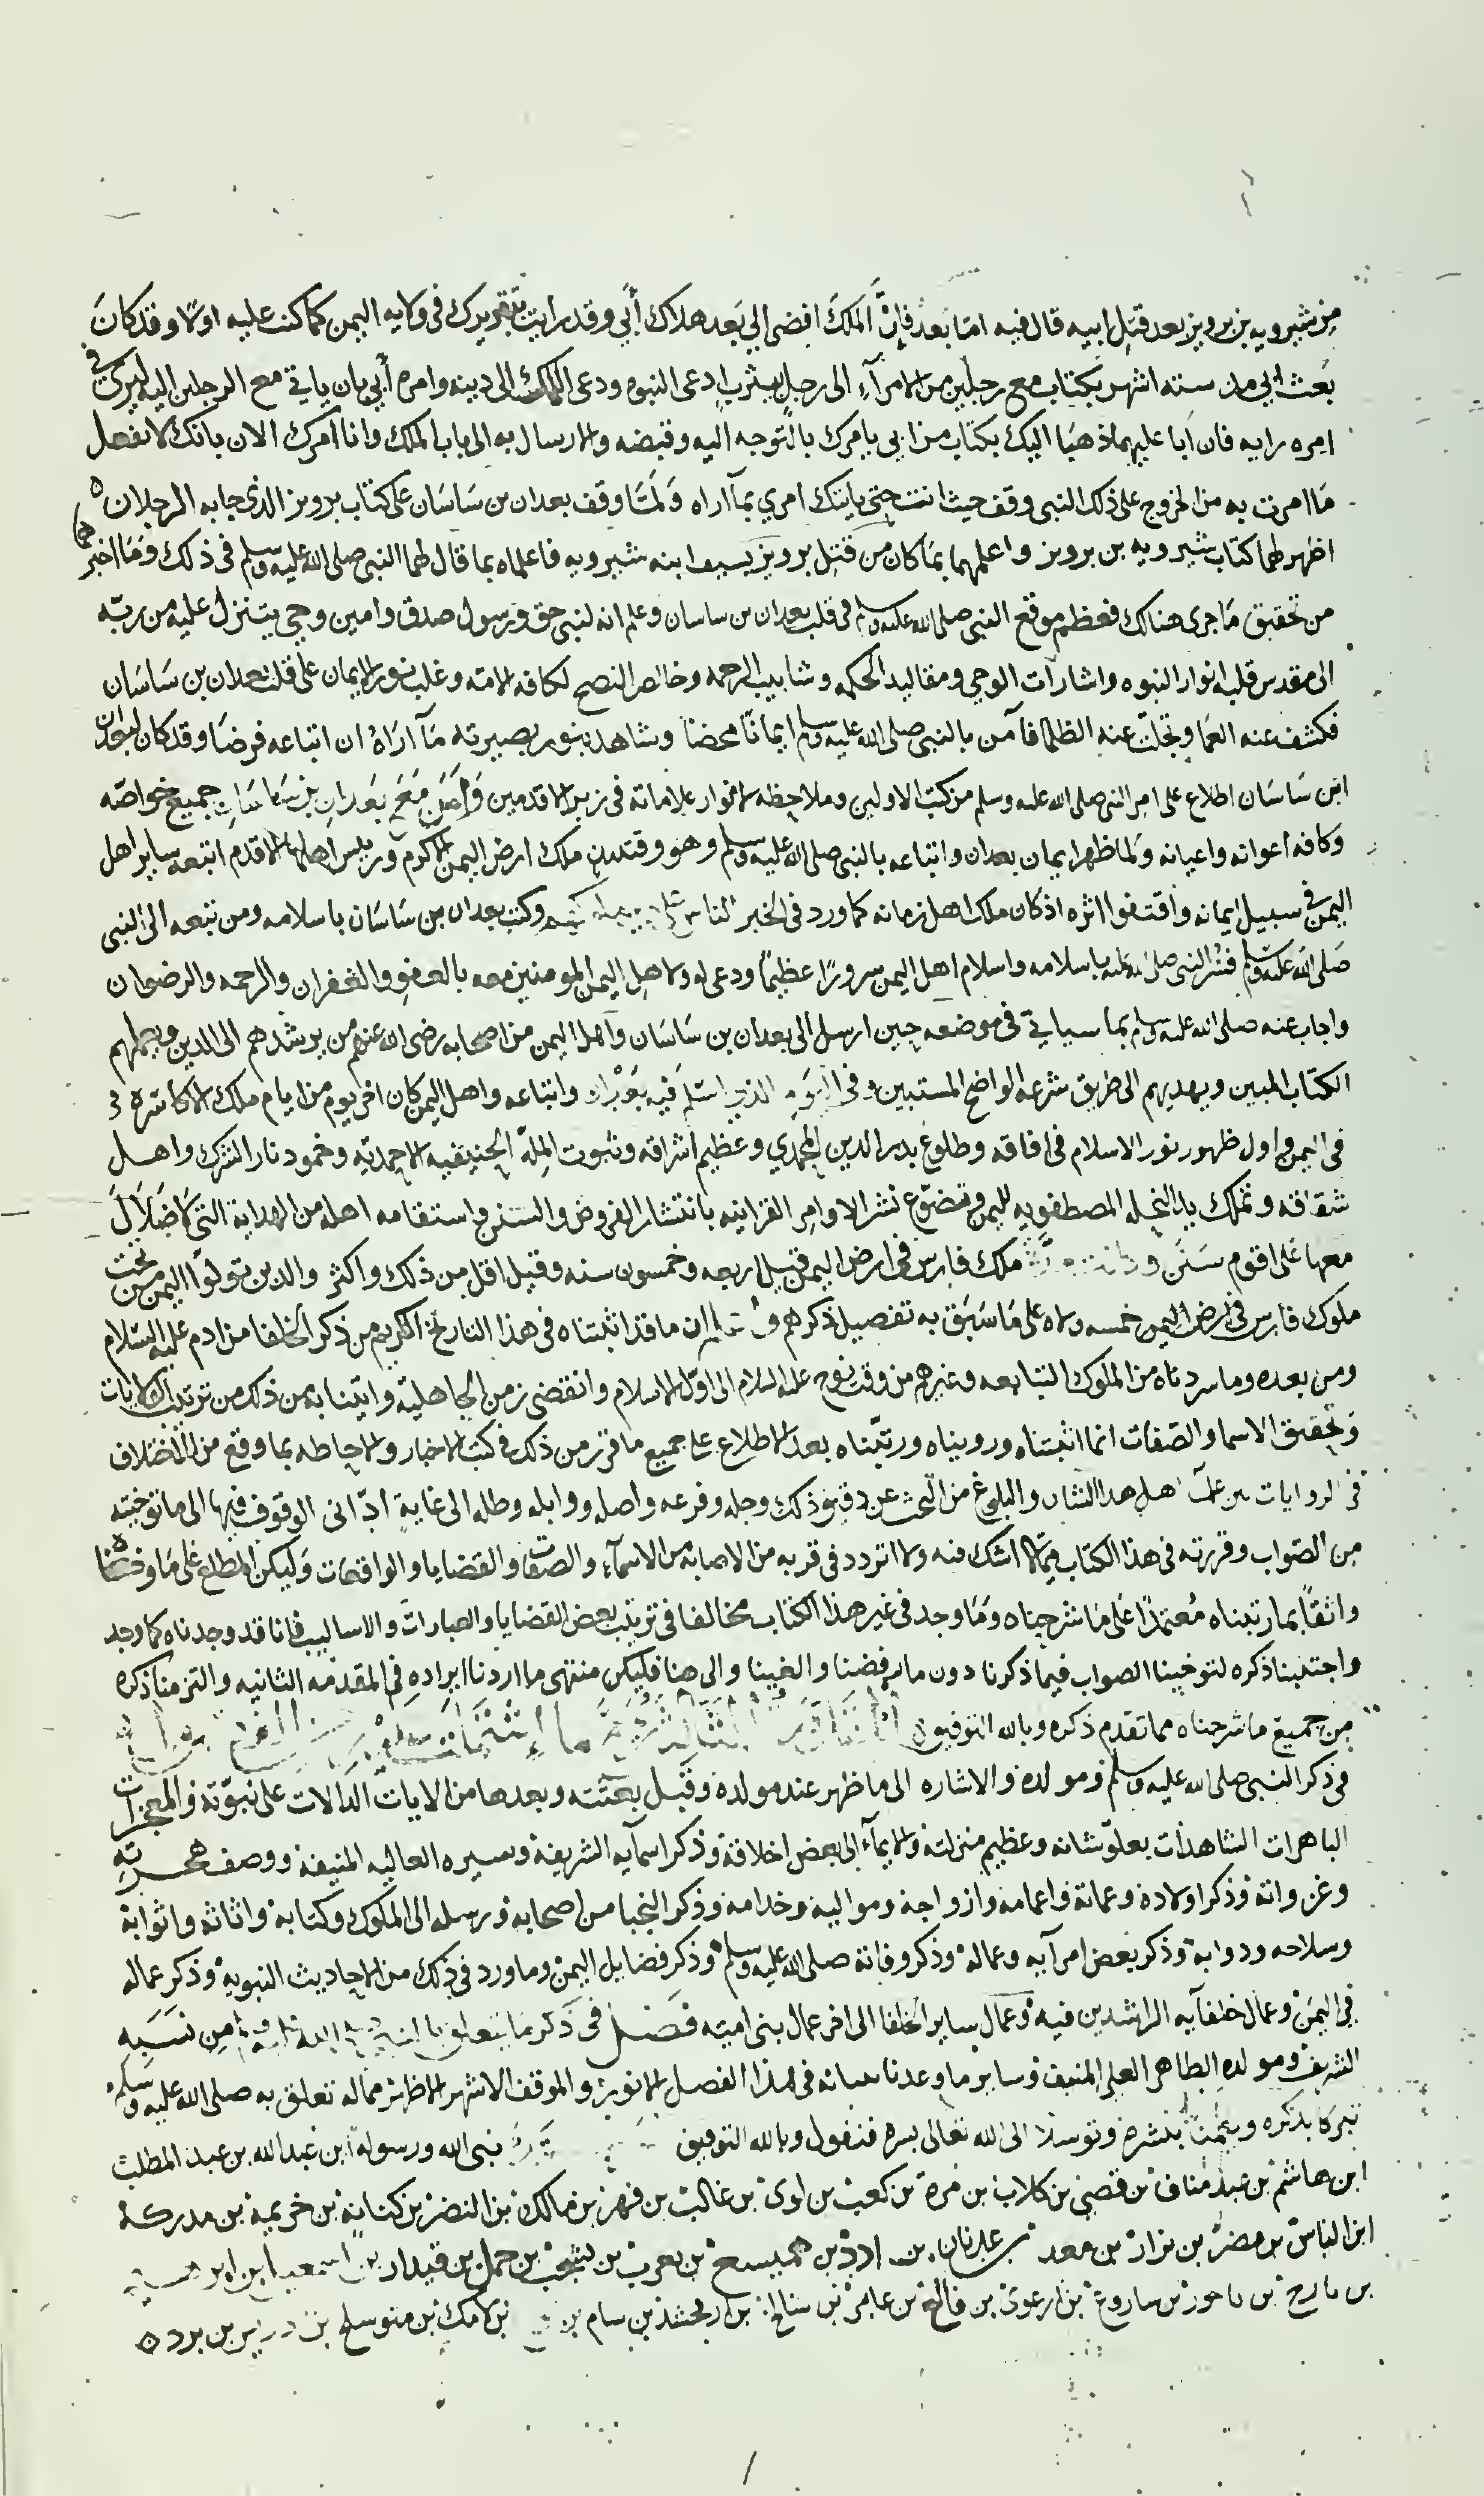 من شيرويه بن برويز بعد قتل ابيه قال فيه اما بعد فإنَّ المُلكَ افضى الي بَعد هلاك أَبي وقد رايت تقريرك في ولايه اليمن كما كنت عليه اولًا وقد كانَ
بَعث ابي مذ سته اشهر بكتاب مع رجلين من الامرآء الى رجلٍ بيثرب ادعى النبوه ودعى الملك الى دينه وامره أبي بان ياتي مع الرجلين اليه ليرى في
امره رايه فان ابا عليهما ذهبا اليك بكتاب من ابي يامرك بالتوجه اليه وقبضه والارسال به الى باب الملك وانا امرك الان بانك لا تفعل
مَا امرت به من الخروج على ذلك النبي وقف حيث انت حتى ياتيك امري بمآ اراه وَلمَّا وقف بعدان بن سَاسَان على كتاب برويز الذي جابه الرجلان
اظهر لهما كتاب شيرويه بن برويز واعلمهما بمَا كان من قتل برويز بسيف ابنه شيرويه فاعلماه بما قال لهما النبي صلى الله عليه وسلم في ذلك ومَا اخبرهما
من تحقيق مَا جرى هناك فعظم موقع النبي صلى الله عليه وسلم في قلب بعدان بن ساسان وعلم انه لنبي حق ورسول صدق وامين وحي يتنزل عليه من ربّه
الى مقدس قلبه انوار النبوه واشارات الوحي ومقاليد الحكمه وشابيب الرحمه وخالص النصح لكافه الامّه وغلب نور الايمان على قلب بعدان بن سَاسَان
فكشف عنه العمَا وتجلت عنه الظلما فآمن بالنبي صلى الله عليه وسلم ايمانًا محضًا وشاهد بنور بصيرته مَآ اراهُ ان اتباعه فرضًا وقد كان لبعدان
ابن سَاسَان اطلاع على امر النبي صلى الله عليه وسلم من كتب الاولين وملاحظه لانوار علاماته في زبر الاقدمين وَآمَن مَعَ بَعدَان بن سَاسَان جميع خواصّه
وكافه اعوانه واعيانه ولما ظهر ايمان بعدان واتباعه بالنبي صلى الله عليه وسلم وهو وقتيذٍ ملك ارض اليمن الاكرم وريس اهلها الاقدم اتبعه ساير اهل
اليمن في سبيل ايمانه واقتفوا اثره اذ كان ملك اهل زمانه كما ورد في الخبر الناس على وكتب بعدان بن سَاسَان باسلامه ومن تبعه الى النبي
صَلى الله عليه وسلم فسُرّ النبي صلى الله عليه باسلامه واسلام اهل اليمن سرورًا عظيمًا ودعى له ولاهل اليمن المومنين معه بالعفو والغفران والرحمه والرضوان
واجاب عنه صلى الله عليه وسلم بما سياتي في موضعه حين ارسل الى بعدان بن سَاسَان واهل اليمن من اصحابه رضي الله عنهم من يرشدهم الى الدين ويعلمهم
الكتاب المبين ويهديهم الى طريق شرعه الواضح المستبين وفي اليوم الذي اسلم فيه بَعْدَان واتباعه واهل اليمن كان اخر يوم من ايام ملك الاكاسره
في اليمن واول ظهور نور الاسلام في افاقه وطلوع بدر الدين المحمدي وعظيم اشراقه وثبوت المِلّه الحنيفيه الاحمديّه وخمود نار الشرك واهل
شقاقه وتملك بالنحله المصطفويه لليمن وتضوّع نشر الاوامر القرانيه بانتشار الفروض والسنن واستقامه اهله من الهداية التي لا ضَلَالَ
معها على اقوم سَنَن ملك فارس في ارض اليمن قيل اربعه وخمسون سنه وقيل اقل من ذلك واكثر والذين تولوا اليمن من تحت
ملوك فارس في ارض اليمن خمسه ولاه على مَا سَبَق به تفصيل ذكرهم ان ما قد اثبتناه في هذا التاريخ الكريم من ذكر الخلفا من ادم عليه السلام
ومن بعده وما سردناه من الملوك التبابعه وغيرهم من وقت نوح عليه السلام الى اوّل الاسلام وانقضى زمن الجاهليّه واتينا به من ذلك من ترتيب الحكايات
وتحقيق الاسما والصّفات انما اثبتناه ورويناه ورتّبناه بعد الاطلاع على جميع ما قرر من ذلك في كتب الاخبار والاحاطه بما وقع من الاختلاف
في الروايات بين علمآ اهل هذا الشان والبلوغ من البحث عن دقيق ذلك وجله وفرعه واصله ووابله وطله الى غاية ادّانى الوقوف فيها الى ما توخيته
من الصّواب وقررته في هذا الكتاب فيما لا اشك فيه ولا اتردد في قربه من الاصابه من الاسمآء والصفات والقضايا والواقعات وليكن المطلع على مَا وضعناه
واثقًا بما رتبناه مُعتمدًا عَلى مَا شرحناه ومَا وجد في غير هذا الكتاب مخالفا في ترتيب بعض القضايا والعبارات والاساليب فإنا قد وجدناه كما وجد
واجتنبنا ذكره لتوخينا الصواب فيما ذكرنا دون ما رفضنا والغينا والى هنا فليكن منتهى ما اردنا ايراده في المقدمه الثانيه والتزمنا ذكره
من جميع ما شرحناه مما تقدم ذكره وبالله التوفيق
في ذكر النبي صلى الله عليه وسلم ومولده والاشاره الى ما ظهر عند مولده وقَبل بعثته وبعدها من الايات الدالات على نبوّته والمعجزات
الباهرات الشاهدات بعلوّ شانه وعظيم منزلته والايمآء الى بعض اخلاقه وذكر اسمآيه الشريفه وسيره العاليه المنيفه ووصف هجرته
وغزواته وذكر اولاده وعماته واعمامه وازواجه ومواليه وخدامه وذكر النجبا من اصحابه ورسله الى الملوك وكتابه واثاثه واثوابه
وسلاحه ودوابه وذكر بعض امرآيه وعماله وذكر وفاته صلى الله عليه وسلم وذكر فضايل اليمن وما ورد في ذلك من الاحاديث النبويه وذكر عماله
في اليمن وعمال خلفآيه الراشدين فيه وعمال ساير الخلفا الى اخر عمال بني اميّه فصل في ذكر ما يتعلق من نسَبه
الشريف ومولده الطاهر العلي المنيف وساير ما وعدنا ببيانه في هذا الفصل الانور والموقف الاشهر الاظهر مما له تعلق به صلى الله عليه وسلم
تبركا بذكره وتيمنًا بنشره وتوسلا الى الله تعالى بسره فنقول وبالله التوفيق نبي الله ورسوله ابن عبدالله بن عبد المطلب
ابن هاشم بن عبد مناف بن قصي بن كلاب بن مرة بن كعب بن لوى بن غالب بن فهر بن مالك بن النضر بن كنانة بن خزيمه بن مدركة
ابن الياس بن مضر بن نزار بن معد بن عدنان بن ادد بن هميسع بن يعرب بن يشجب بن حمل بن قيدار بن اسمعيل ابن ابرهيم
بن تارح بن ناحور بن ساروغ بن ارعوى بن فالغ بن عابر بن شالخ بن ارفخشذ بن سام بن بن لامك بن متوسلح بن ادريس بن يرد